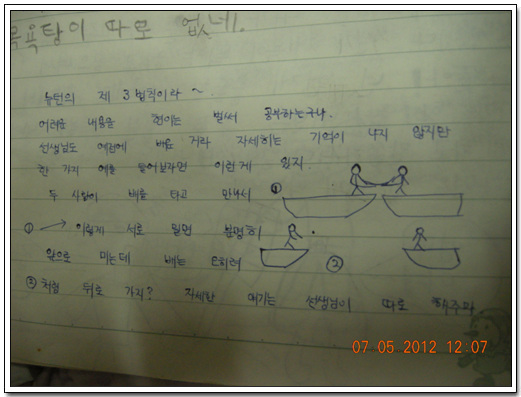 목욕탕이 따로 없네.
뉴턴의 제 3 법칙이라~
어려운 내용을 현이는 벌써 공부하는구나.
선생님도 예전에 배운 거라 자세히는 기억이 나지 않지만
한 가지 예를 들어보자면 이런게 있지.
두 사람이 배를 타고 만나서 ①
① → 이렇게 서로 밀면 분명히
앞으로 미는데 배는 오히려 ②
③처럼 뒤로 가지? 자세한 얘기는 선생님이 따로 해주마
07 05 2012 12:07